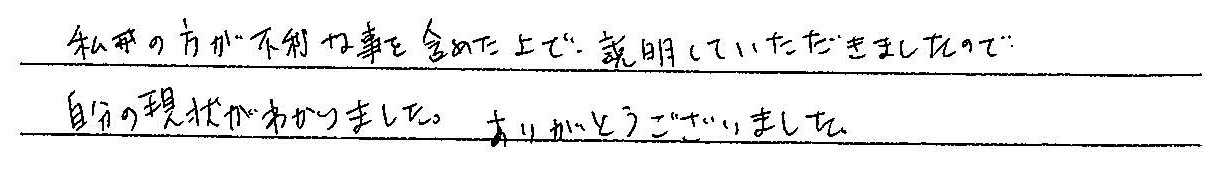 私共の方が不利な事を含めた上で、説明していただきましたので
自分の現状がわかりました。ありがとうございました。